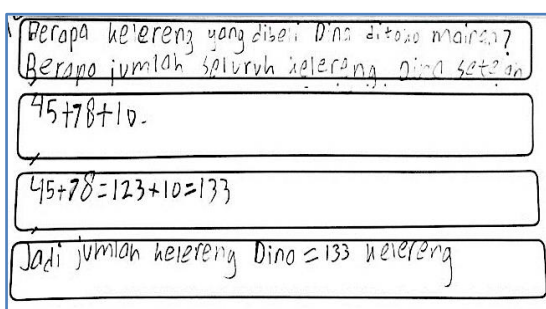 Berapa kelereng yang dibeli Dino ditoko mainan?
Berapa jumlah seluruh kelereng Dino setelah
45+78+10.
45+78=123+10=133
Jadi jumlah kelereng Dino = 133 kelereng